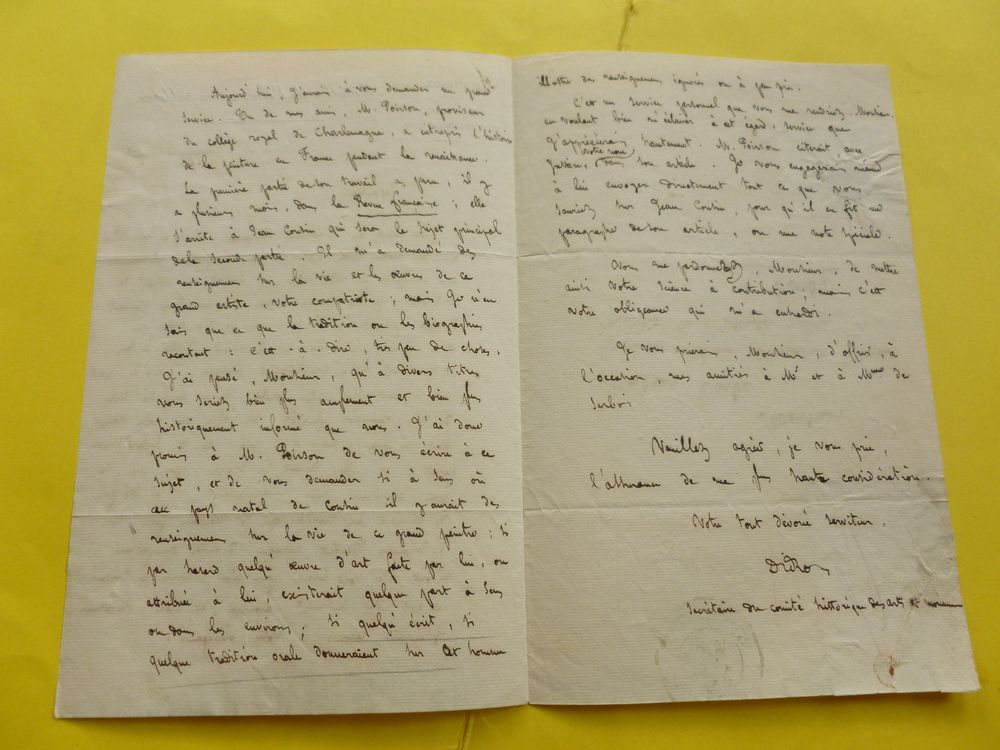 Aujourd'hui, j'aurais à vous demander un grand
service. Un de mes amis, M. Poirson, proviseur
du collège royal de Charlemagne, a entrepris l'histoire
de la peinture en France pendant la renaissance.
La première partie de son travail a paru, il y
a plusieurs mois, dans la Revue française ; elle
s'arrête à Jean Cousin qui sera le sujet principal
de la seconde partie. Il m'a demandé des
renseignemens sur la vie et les œuvres de ce
grand artiste, votre compatriote ; mais je n'en
sais que ce que la tradition ou les biographies
racontent : c'est-à-dire, très peu de choses.
J'ai pensé, Monsieur, qu'à divers titres
vous seriez bien plus amplement et bien plus
historiquement informé que nous. J'ai donc
promis à M. Poirson de vous écrire à ce
sujet, et de vous demander si à Sens où
au pays natal de Cousin il y aurait des
renseignemens sur la vie de ce grand peintre ; si
par hasard quelqu'œuvre d'art faite par lui, ou
attribuée à lui, existerait quelque part à Sens
ou dans les environs ; si quelqu'écrit, si
quelque tradition orale donneraient sur cet homme
illustre des renseignemens ignorés ou à peu près.
C'est un service personnel que vous me rendriez, Monsieur
en voulant bien m'éclairer à cet égard, service que
j'apprécierais hautement. M. Poirson citerait avec
justice, votre nom dans son article. Je vous engagerais même
à lui envoyer directement tout ce que vous
sauriez sur Jean Cousin, pour qu'il en fit un
paragraphe de son article, ou une note spéciale.
Vous me pardonnerez, Monsieur, de mettre
ainsi votre science à contribution ; mais c'est
votre obligeance qui m'a enhardi.
Je vous prierais, Monsieur, d'offrir, à
l'occasion, mes amitiés à Mr et à Mme de
Serbois
Veuillez agréer, je vous prie,
l'assurance de ma plus haute considération.
Votre tout dévoué serviteur,
Didron
Secrétaire du comité historique des arts et monumens